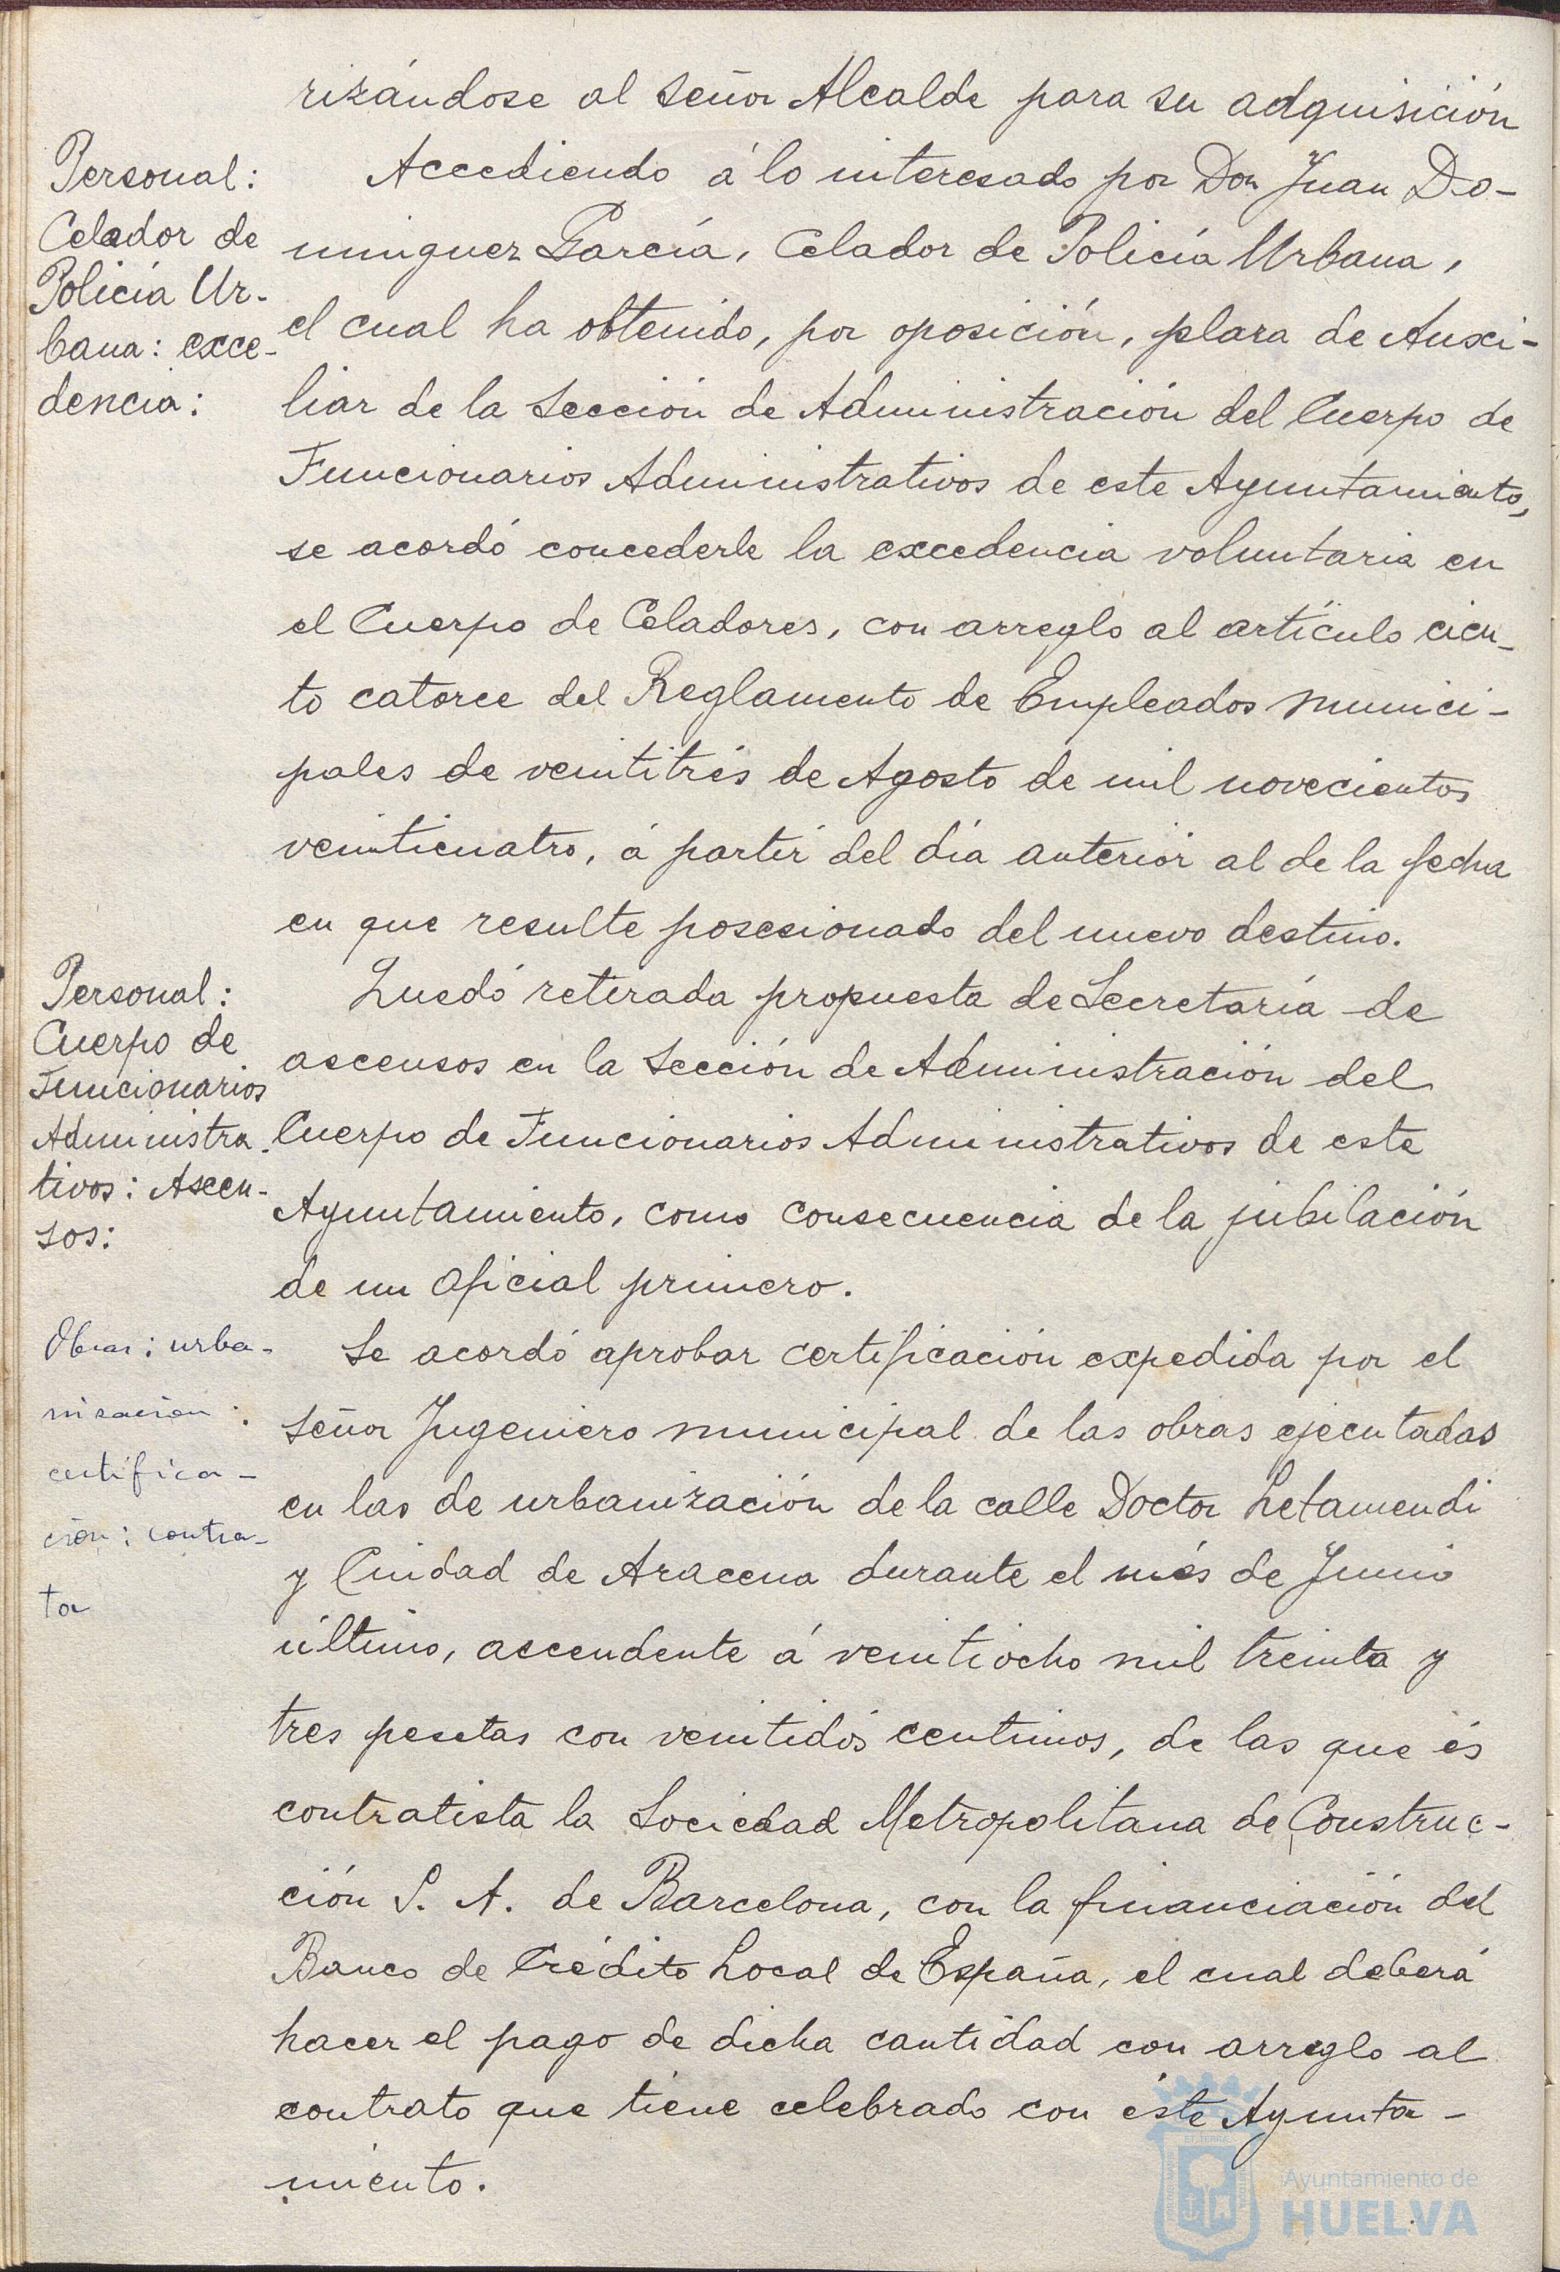 rizándose al Señor Alcalde para su adquisición
Personal:
Celador de
Policía Ur-
bana: exce-
dencia:
Accediendo á lo interesado por Don Juan Do-
minguez García, Celador de Policía Urbana,
el cual ha obtenido, por oposición, plaza de Auxi-
liar de la Sección de Administración del Cuerpo de
Funcionarios Administrativos de este Ayuntamiento,
se acordó concederle la excedencia voluntaria en
el Cuerpo de Celadores, con arreglo al artículo cien-
to catorce del Reglamento de Empleados munici-
pales de veintitrés de Agosto de mil novecientos
veinticuatro, á partir del día anterior al de la fecha
en que resulte posesionado del nuevo destino.
Personal:
Cuerpo de
Funcionarios
Administra-
tivos: Ascen-
sos:
Quedó retirada propuesta de Secretaría de
ascensos en la Sección de Administración del
Cuerpo de Funcionarios Administrativos de este
Ayuntamiento, como consecuencia de la jubilación
de un Oficial primero.
Obras: urba-
nizacion:
certifica-
cion: contra-
ta
Se acordó aprobar certificación expedida por el
Señor Ingeniero municipal de las obras ejecutadas
en las de urbanización de la calle Doctor Letamendi
y Ciudad de Aracena durante el més de Junio
último, ascendente á veintiocho mil treinta y
tres pesetas con veintidós centimos, de las que és
contratista la Sociedad Metropolitana de Construc-
ción S. A. de Barcelona, con la financiación del
Banco de Crédito Local de España, el cual deberá
hacer el pago de dicha cantidad con arreglo al
contrato que tiene celebrado con éste Ayunta-
miento.
Ayuntamiento de
HUELVA